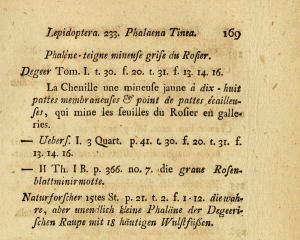 Lepidoptera. 233. Phalaena Tinea. 169
Phaléne-teigne mineuse grise du Rosier.
Degeer Tom. I. t. 30. f. 20. t. 31. f. 13. 14. 16.
La Chenille une mineuse jaune à dix-huit
pattes membraneuses & point de pattes écailleu-
ses, qui mine les feuilles du Rosier en galle-
ries.
— Uebers. I. 3 Quart. p. 41. t. 30. f. 20. t. 31. f.
13. 14. 16.
— II Th I B. p. 366. no. 7. die graue Rosen-
blattminirmotte.
Naturforscher 15tes St. p. 21. t. 2. f. 1-12. die wah-
re, aber unendlich kleine Phaläne der Degeeri-
schen Raupe mit 18 häutigen Wulstfüßen.